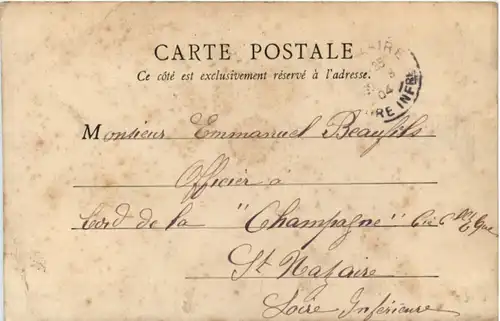 CARTE POSTALE
Ce côté est exclusivement réservé à l'adresse.
AIRE
04
RE INFRE
Monsieur Emmanuel Beaufils
Officier à
bord de la "Champagne" Cie Gle
St Nazaire
Loire Inférieure